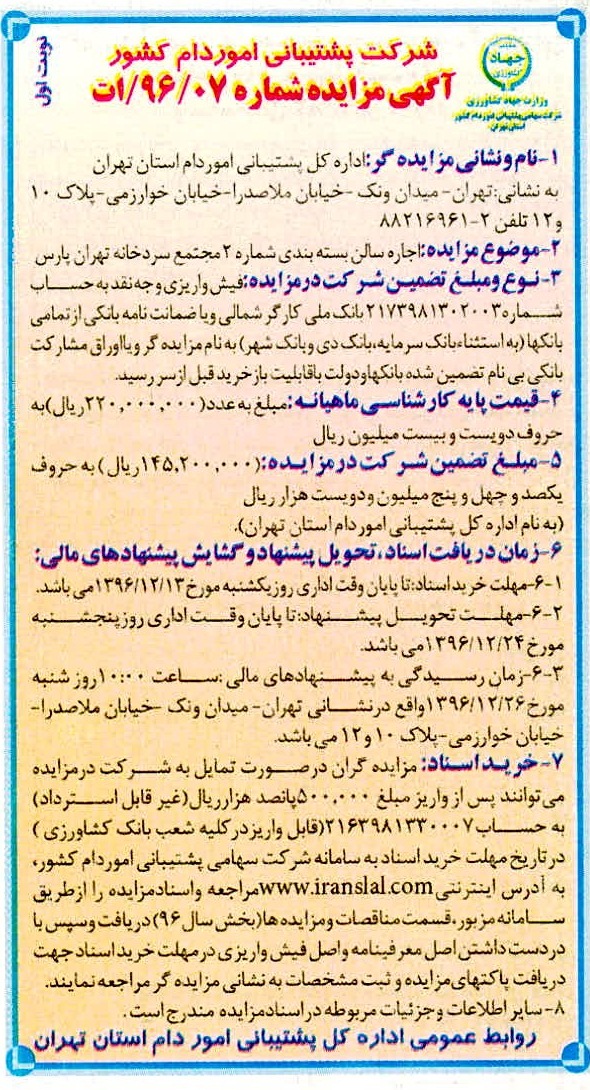 نوبت اول
جهاد
کشاورزی
وزارت جهاد کشاورزی
شرکت سهامی پشتیبانی امور دام کشور
استان تهران
شرکت پشتیبانی امور دام کشور
آگهی مزایده شماره ۹۶/۰۷/ات
۱-نام و نشانی مزایده گر: اداره کل پشتیبانی امور دام استان تهران
به نشانی: تهران- میدان ونک -خیابان ملاصدرا-خیابان خوارزمی-پلاک ۱۰
و ۱۲ تلفن ۲-۸۸۲۱۶۹۶۱
۲-موضوع مزایده: اجاره سالن بسته بندی شماره ۲ مجتمع سردخانه تهران پارس
۳-نوع و مبلغ تضمین شرکت در مزایده: فیش واریزی وجه نقد به حساب
شماره ۲۱۷۳۹۸۱۳۰۲۰۰۳ بانک ملی کارگر شمالی ویا ضمانت نامه بانکی از تمامی
بانکها (به استثناء بانک سرمایه، بانک دی و بانک شهر) به نام مزایده گر و یا اوراق مشارکت
بانکی بی نام تضمین شده بانکها و دولت با قابلیت باز خرید قبل از سر رسید.
۴-قیمت پایه کارشناسی ماهیانه: مبلغ به عدد (۲۲۰,۰۰۰,۰۰۰ ریال) به
حروف دویست و بیست میلیون ریال
۵-مبلغ تضمین شرکت در مزایده: (۱۴۵,۲۰۰,۰۰۰ ریال) به حروف
یکصد و چهل و پنج میلیون و دویست هزار ریال
(به نام اداره کل پشتیبانی امور دام استان تهران).
۶-زمان دریافت اسناد، تحویل پیشنهاد و گشایش پیشنهادهای مالی:
۶-۱-مهلت خرید اسناد: تا پایان وقت اداری روز یکشنبه مورخ ۱۳۹۶/۱۲/۱۳ می باشد.
۶-۲-مهلت تحویل پیشنهاد: تا پایان وقت اداری روز پنجشنبه
مورخ ۱۳۹۶/۱۲/۲۴ می باشد.
۶-۳-زمان رسیدگی به پیشنهادهای مالی: ساعت ۱۰:۰۰ روز شنبه
مورخ ۱۳۹۶/۱۲/۲۶ واقع در نشانی تهران- میدان ونک -خیابان ملاصدرا-
خیابان خوارزمی-پلاک ۱۰ و ۱۲ می باشد.
۷-خرید اسناد: مزایده گران در صورت تمایل به شرکت در مزایده
می توانند پس از واریز مبلغ ۵۰۰,۰۰۰ پانصد هزار ریال (غیر قابل استرداد)
به حساب ۲۱۶۳۹۸۱۳۳۰۰۰۷ (قابل واریز در کلیه شعب بانک کشاورزی)
در تاریخ مهلت خرید اسناد به سامانه شرکت سهامی پشتیبانی امور دام کشور،
به آدرس اینترنتی www.iranslal.com مراجعه و اسناد مزایده را از طریق
سامانه مزبور، قسمت مناقصات و مزایده ها (بخش سال ۹۶) دریافت و سپس با
در دست داشتن اصل معرفینامه و اصل فیش واریزی در مهلت خرید اسناد جهت
دریافت پاکتهای مزایده و ثبت مشخصات به نشانی مزایده گر مراجعه نمایند.
۸-سایر اطلاعات و جزئیات مربوطه در اسناد مزایده مندرج است.
روابط عمومی اداره کل پشتیبانی امور دام استان تهران